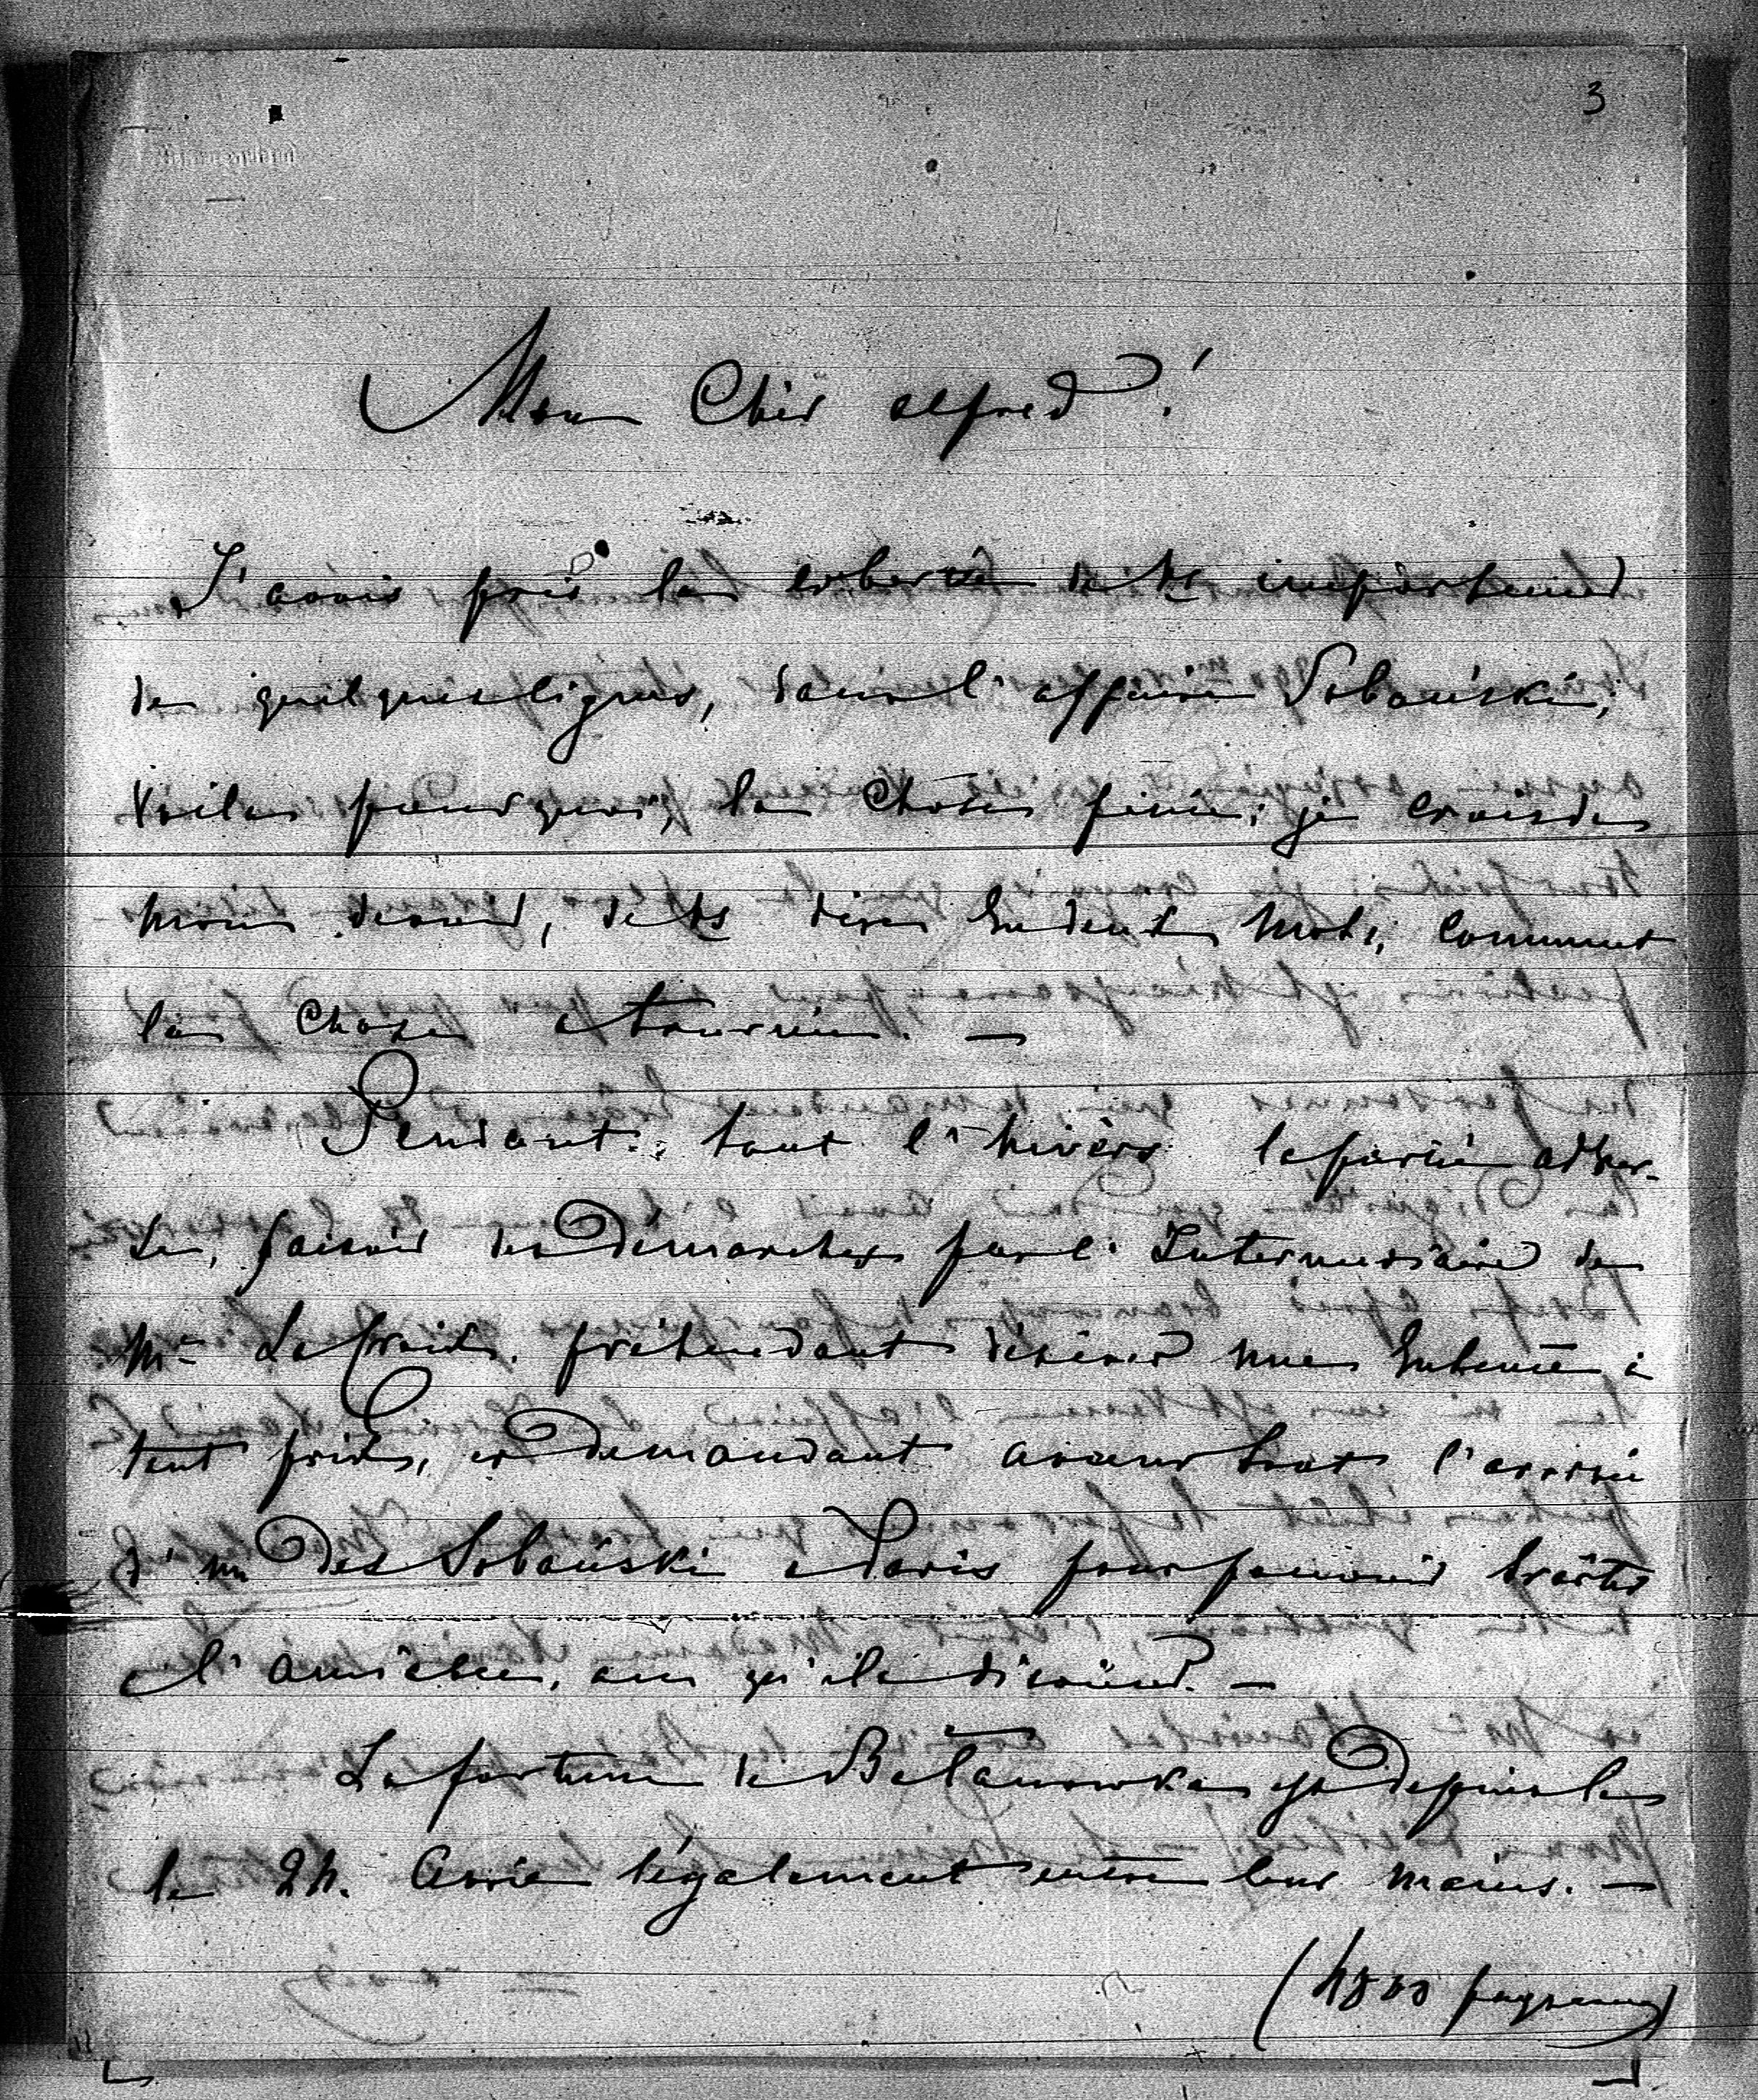 3
Mon Cher alfred!
J'avais pris la liberté de te importuner
de quelques lignes, dans l'affaire Sobański;
voila pourquoi, la chose finie; je crois de
mon devoir, de te dire en deux mots, comment
la chose a tournée. —
Pendant tout l'hivèrs la partie adver-
se, faisait des démarches par l'Intermediaire de
Mr prétendant désirer une Entente à
tout prix, et demandant avant tout l'arrivée
d'un des Sobański a Paris pour pouvoir traiter
a l'amiable, a ce qu'ils disaient. —
La fortune de Bałanowka est depuis le
le 24. Avril légalement entre leur mains. —